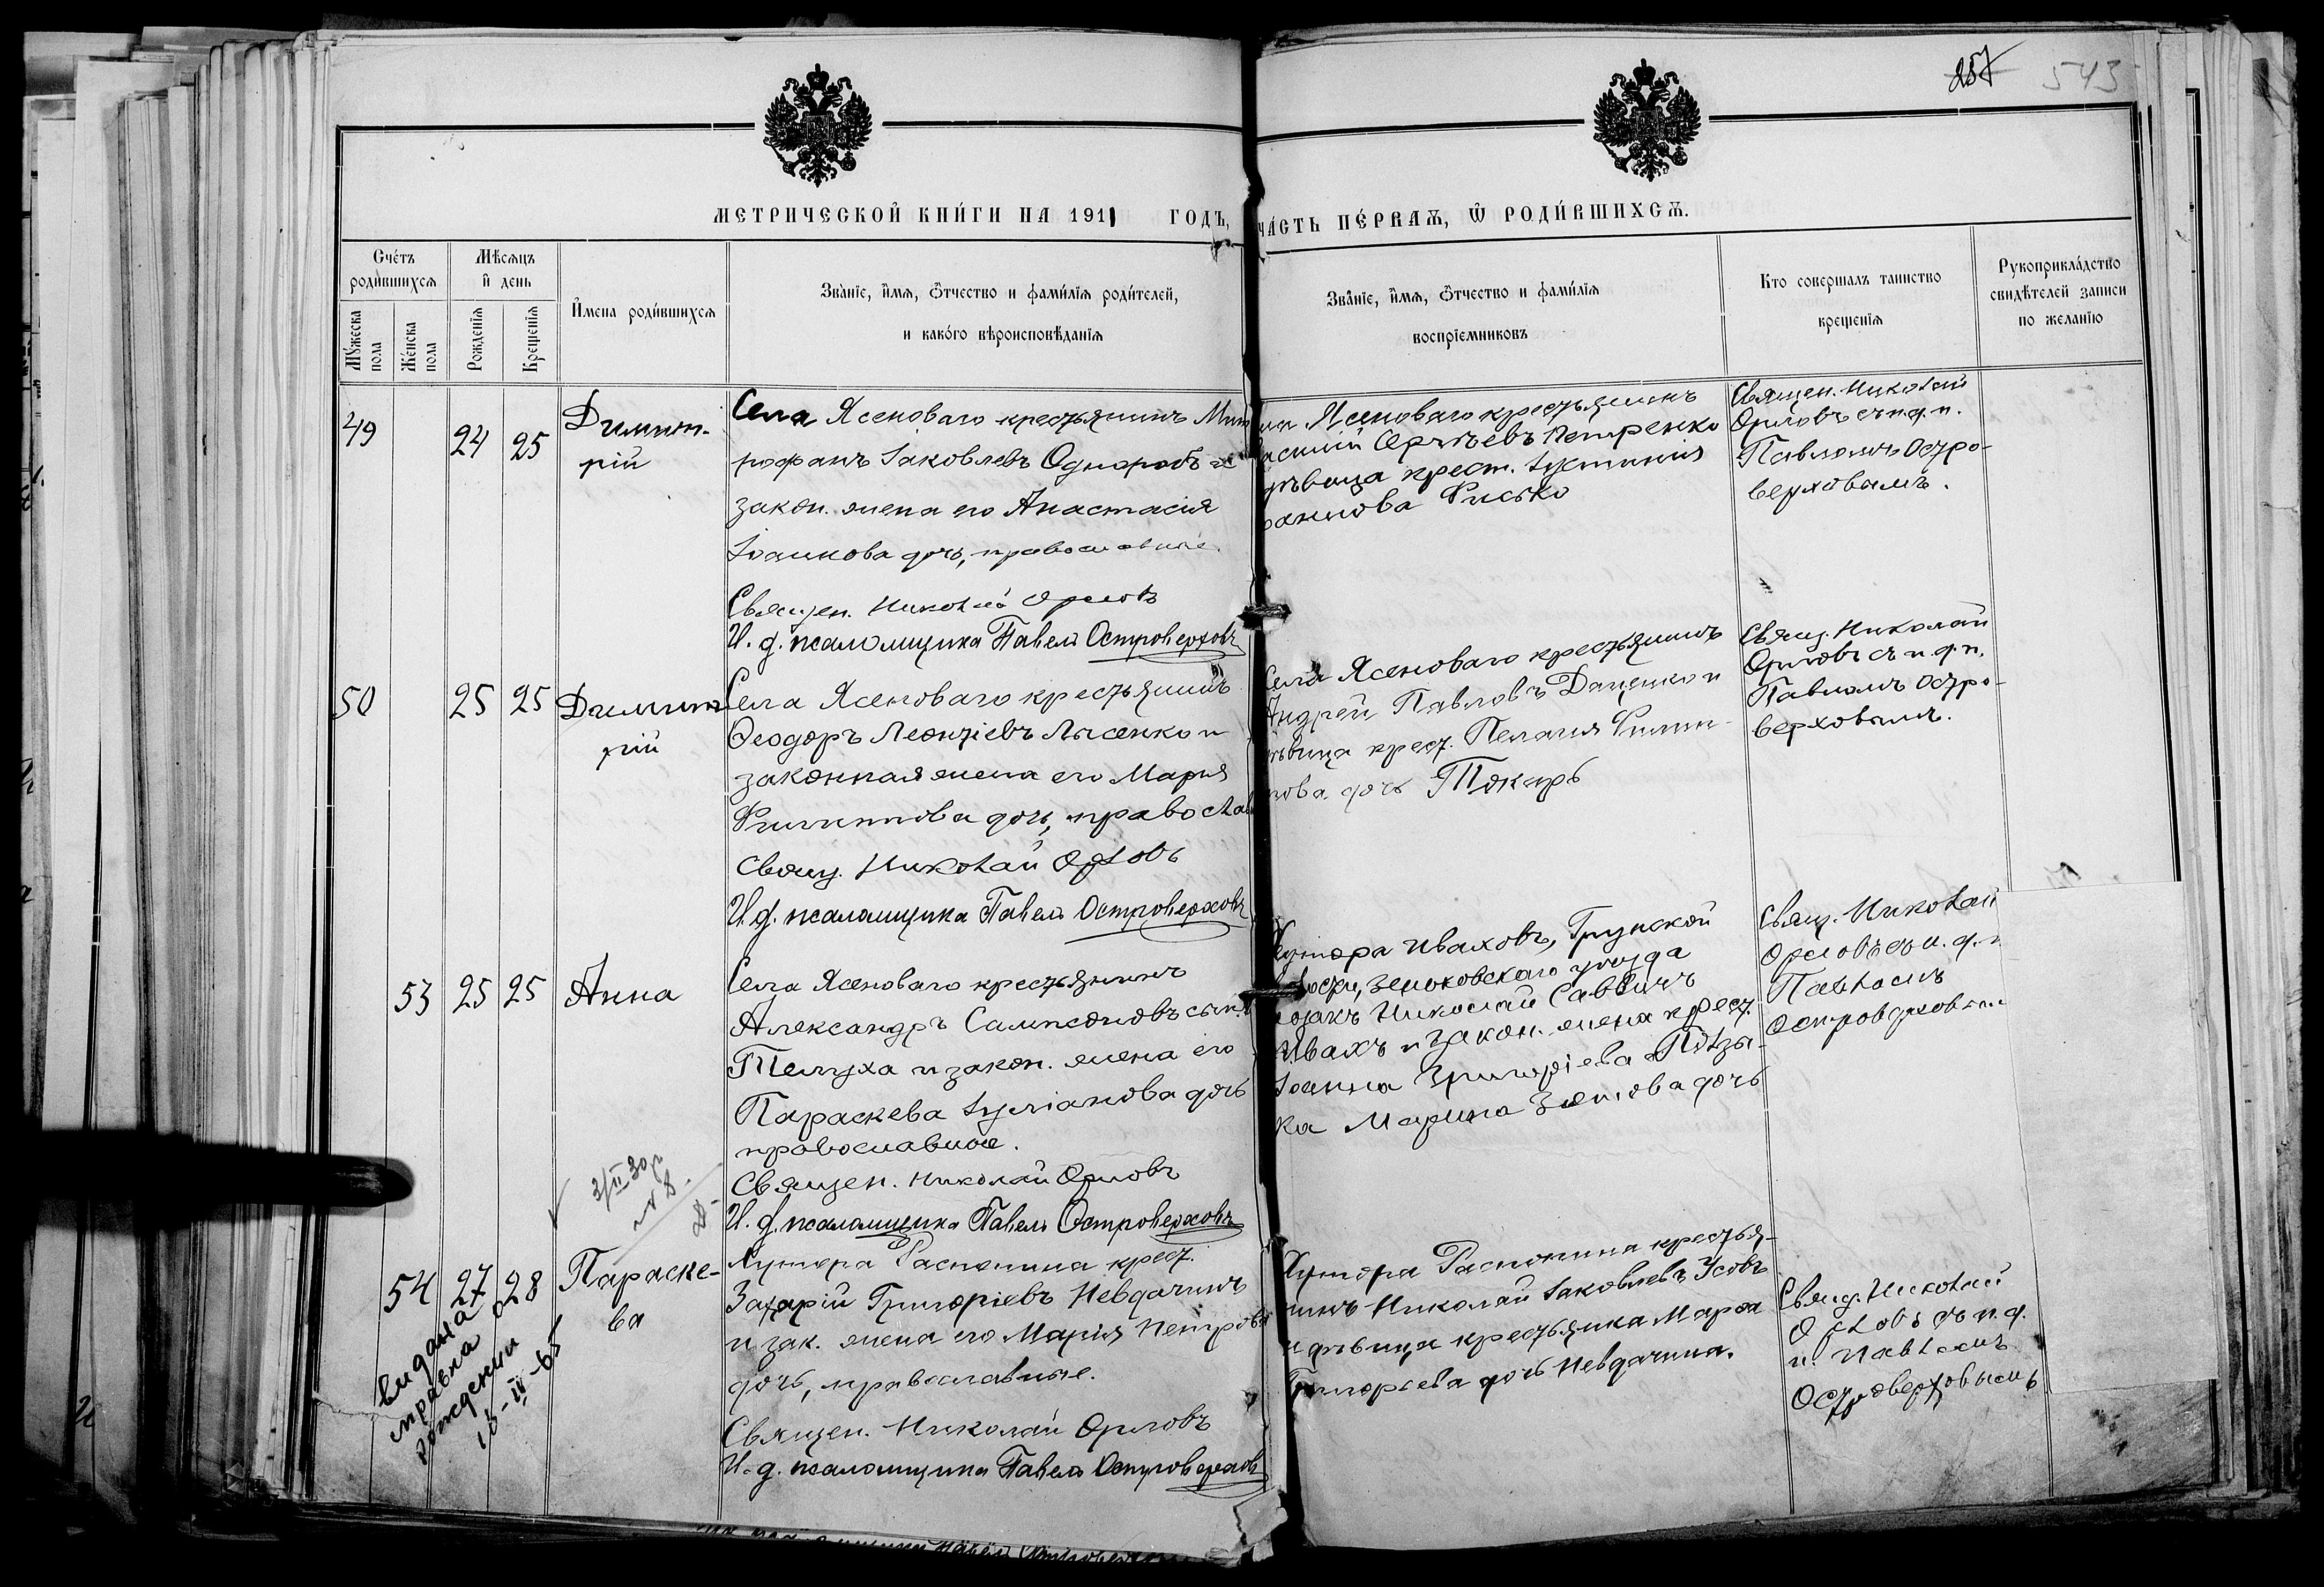 257 543
МЕТРИЧЕСКОЙ КНИ́ГИ НА 1911 ГОДЪ, ЧА́СТЬ ПЕ́РВАѦ, Ѡ РОДИ́ВШИХСѦ.
Сче́тъ роди́вшихсѧ
Мꙋ́жеска пола
Же́нска пола
Мѣ́сѧцъ и҆ день
Рожденїѧ
Крещенїѧ
И҆мена роди́вшихсѧ
Зва́нїе, и҆мѧ, ѻ҆тчество и фами́лїѧ роди́телей,
и како́го вѣроисповѣ́данїѧ
Зва́нїе, и҆мѧ, ѻ҆тчество и фами́лїѧ
воспрїемниковъ
Кто совершалъ таинство
крещенїѧ
Рукоприкла́дство
свидѣтелей записи
по желанїю
49 24 25 Димит-
рій
Села Ясеноваго крестьянинъ Мит
рофанъ Іаковлевъ
закон. жена его Анастасія
Іоаннова дочь, православные
Священ. Николай Орловъ
И. д. псаломщика Павелъ Островерховъ
Ясеноваго крестьянинъ
Сергѣевъ Петренко
крест. Іустинія
Фисько
Священ. Николай
Орловъ съ и. д. п.
Павломъ Остро-
верховымъ.
50 25 25 Димит
рій
Села Ясеноваго крестьянинъ
Ѳеодоръ Леонтіевъ Лысенко и
законная жена его Марія
Филиппова дочь, православ
Свящ. Николай Орловъ
И. д. псаломщика Павелъ Островерховъ
Села Ясеноваго крестьянинъ
Андрей Павловъ Даценко и
дѣвица крест. Пелагія Филип-
пова дочь Токарь
Свящ. Николай
Орловъ съ и. д. п.
Павломъ Остро-
верховымъ.
53 25 25 Анна
Села Ясеноваго крестьянинъ
Александръ Сампсоновъ сынъ
Телуха и закон. жена его
Параскева Іуліанова дочь
православные.
Священ. Николай Орловъ
И. д. псаломщика Павелъ Островерховъ
Хутора Иваховъ, Грунской
волости, Зеньковскаго уѣзда
козакъ Николай Саввичъ
Ивахъ и закон. жена крест.
Іоанна Григоріева
ка Марина дочь
Свящ. Николай
Орловъ съ и. д. п
Павломъ
Островерховым
3/II 30 г
№ 8.
54 27 28 Параске-
ва
Хутора Распопина крест.
Захарій Григоріевъ Невдачинъ
и зак. жена его Марія Петрова
дочь, православные.
Священ. Николай Орловъ
И. д. псаломщика Павелъ Островерховъ
Хутора Распопина крестья-
нинъ Николай Іаковлевъ Усовъ
и дѣвица крестьянка Марѳа
Григорьева дочь Невдачина.
Свящ. Николай
Орловъ съ и. д.
п. Павломъ
Островерховымъ
видана
справка о
рождении